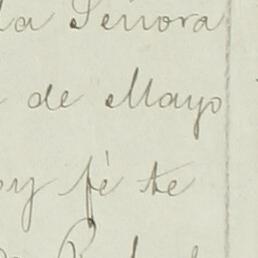 la Señora
de Mayo
oy fé te